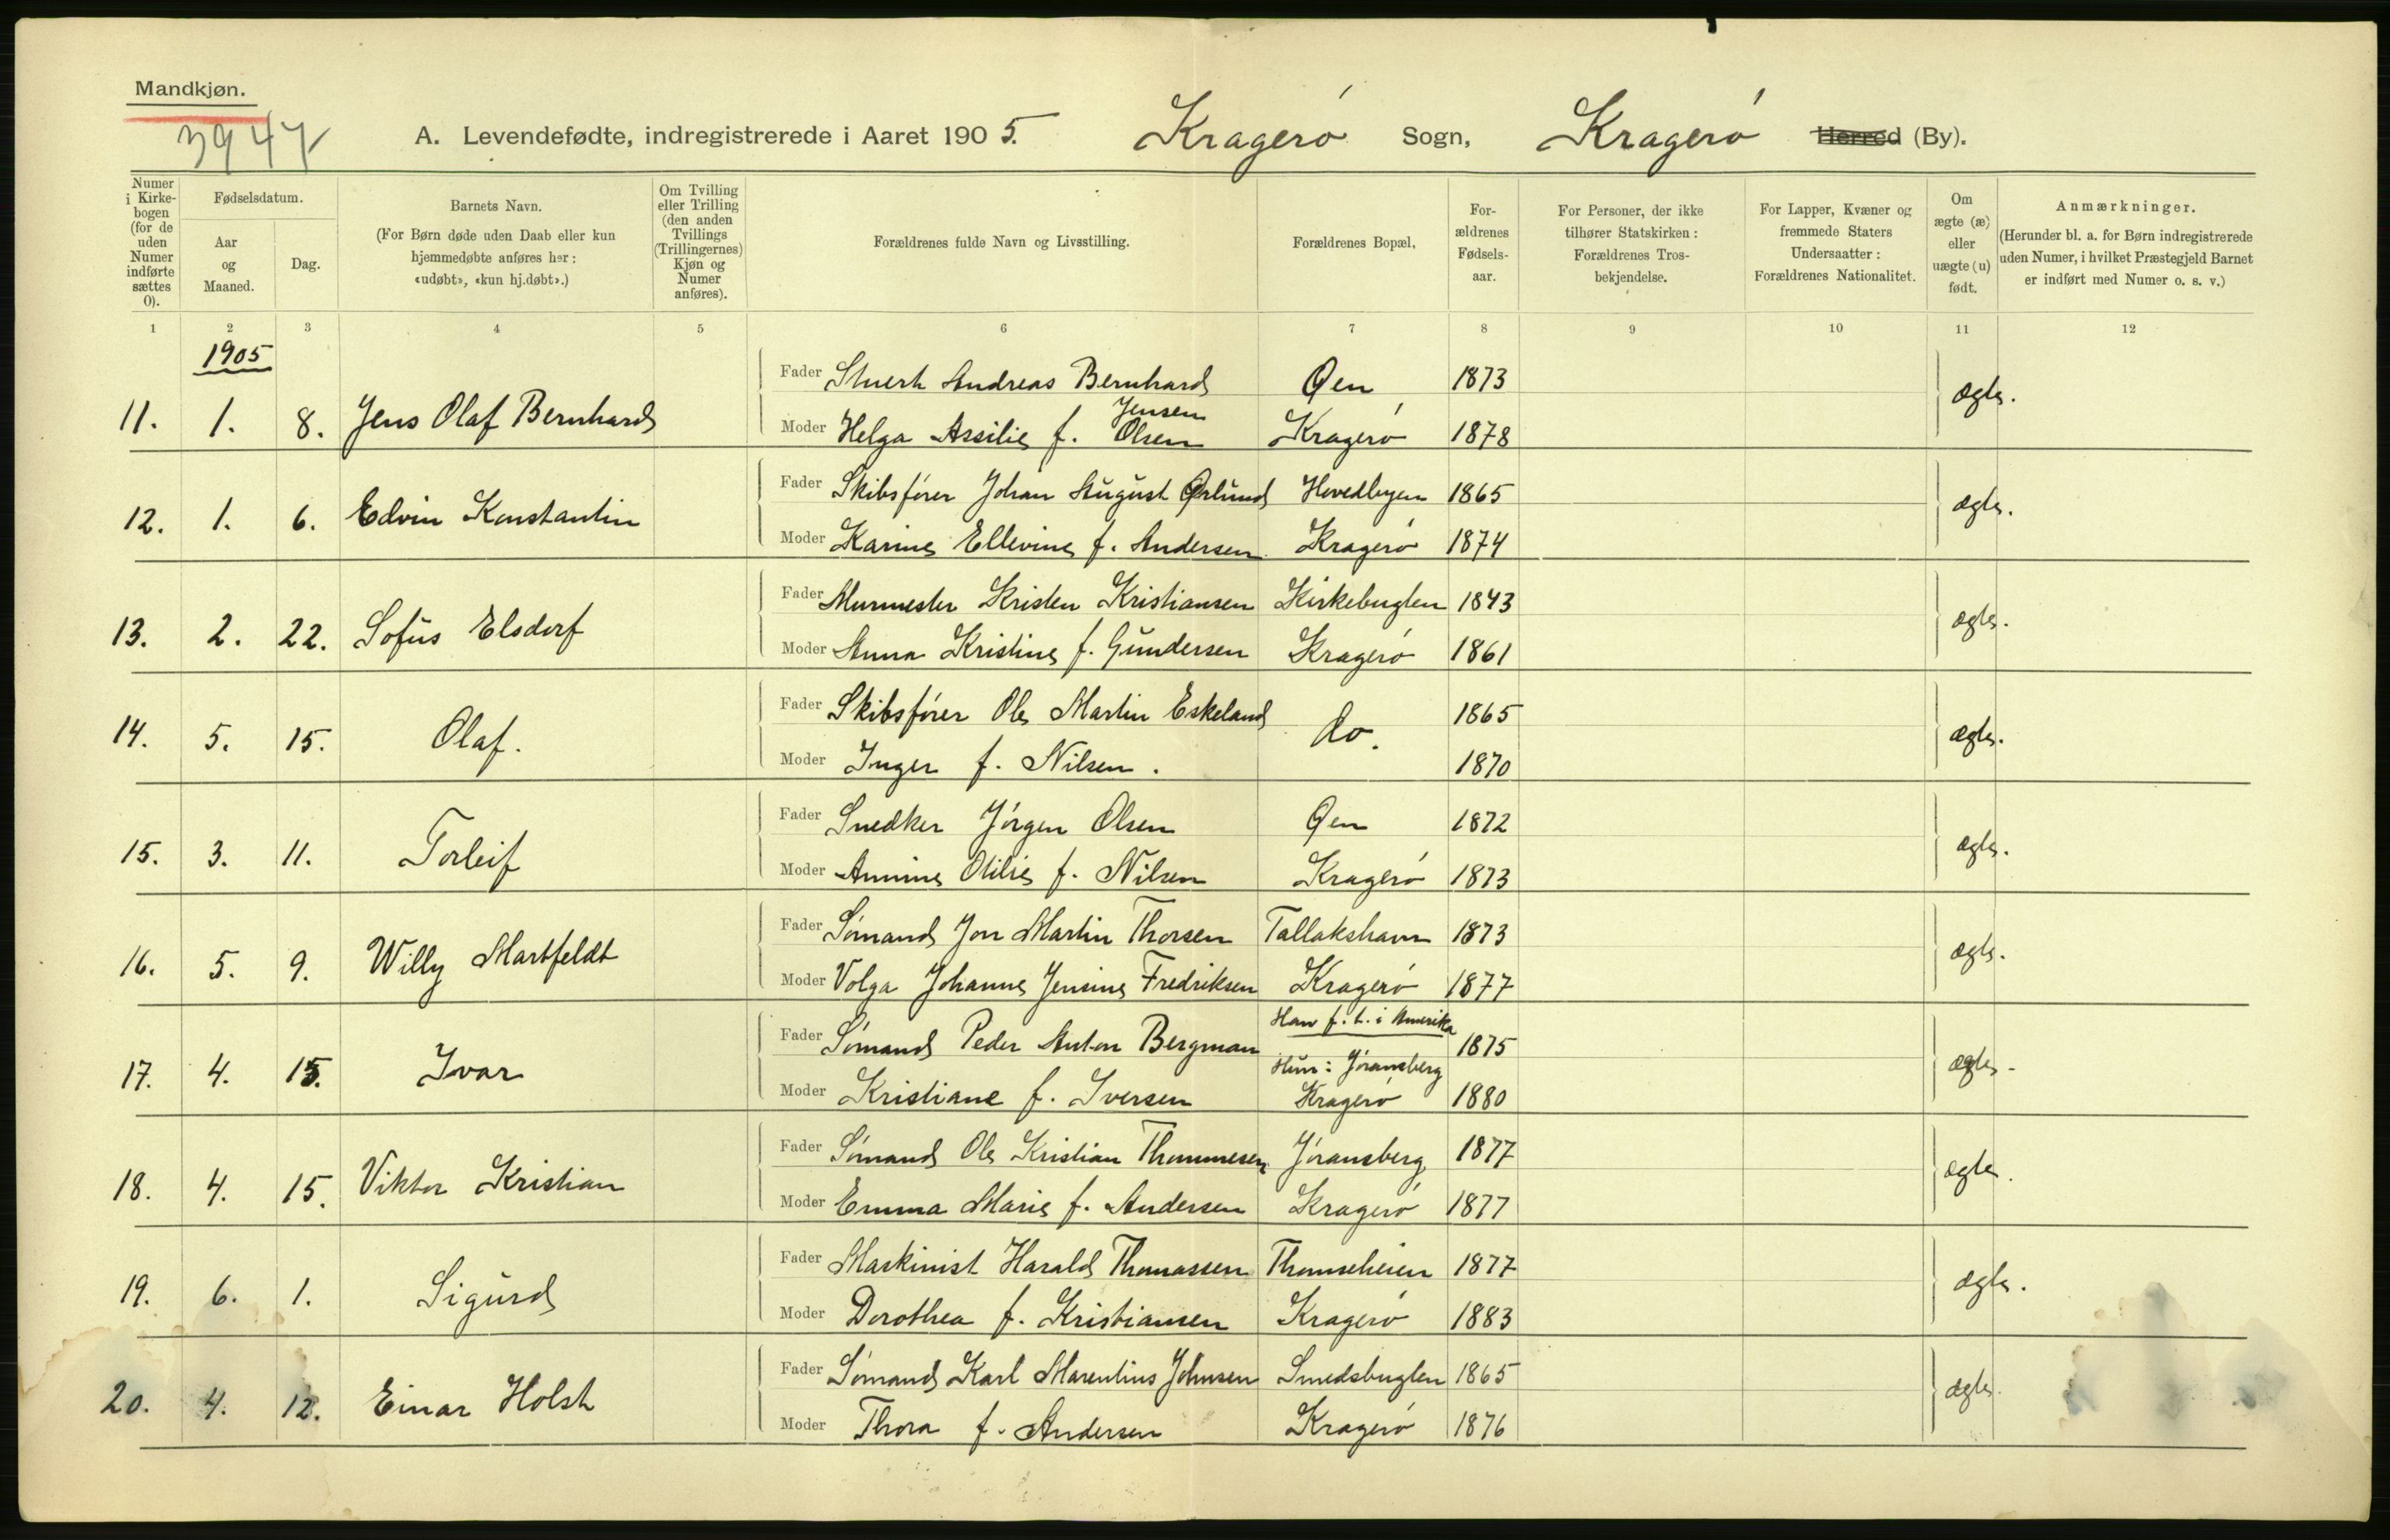 Mandkjøn.
3947
A. Levendefødte, indregistrerede i Aaret 1905. Kragerø Sogn, Kragerø Herred (By).
Numer i Kirkebogen (for de uden Numer indførte sættes 0).
Fødselsdatum.
Aar og Maaned.
Dag.
Barnets Navn.
(For Børn døde uden Daab eller kun hjemmedøbte anføres her: «udøbt», «kun hj.døbt».)
Om Tvilling eller Trilling (den anden Tvillings (Trillingernes) Kjøn og Numer anføres).
Forældrenes fulde Navn og Livsstilling.
Forældrenes Bopæl,
Forældrenes Fødselsaar.
For Personer, der ikke tilhører Statskirken: Forældrenes Trosbekjendelse.
For Lapper, Kvæner og fremmede Staters Undersaatter: Forældrenes Nationalitet.
Om ægte (æ) eller uægte (u) født.
Anmærkninger.
(Herunder bl. a. for Børn indregistrerede uden Numer, i hvilket Præstegjeld Barnet er indført med Numer o. s. v.)
1 2 3 4 5 6 7 8 9 10 11 12
1905
Fader Stuert Andreas Bernhard Øen 1873
Jensen
11. 1. 8. Jens Olaf Bernhard ægte.
Moder Helga Assilie f. Olsen Kragerø 1878
Fader Skibsfører Johan August Ørlund Hovedbyen 1865
12. 1. 6. Edvin Konstantin ægte.
Moder Karine Ellevine f. Andersen Kragerø 1874
Fader Murmester Kristen Kristiansen Kirkebugten 1843
13. 2. 22. Sofus Elsdorf ægte.
Moder Anna Kristine f. Gundersen Kragerø 1861
Fader Skibsfører Ole Martin Eskeland do. 1865
14. 5. 15. Olaf. ægte.
Moder Inger f. Nilsen. 1870
Fader Snedker Jørgen Olsen Øen 1872
15. 3. 11. Torleif ægte.
Moder Annine Otilie f. Nilsen Kragerø 1873
Fader Sømand Jon Martin Thorsen Tallakshavn 1873
16. 5. 9. Willy Martfeldt ægte.
Moder Volga Johanne Jensine Fredriksen Kragerø 1877
Han f. t. i Amerika
Fader Sømand Peder Anton Bergman 1875
17. 4. 15. Ivar Hun: Jøransberg ægte.
Moder Kristiane f. Iversen Kragerø 1880
Fader Sømand Ole Kristian Thommesen Jøransberg 1877
18. 4. 15. Viktor Kristian ægte.
Moder Emma Marie f. Andersen Kragerø 1877
Fader Maskinist Harald Thomassen Thomseheien 1877
19. 6. 1. Sigurd ægte.
Moder Dorothea f. Kristiansen Kragerø 1883
Fader Sømand Karl Marentius Johnsen Smedsbugten 1865
20. 4. 12. Einar Holst ægte.
Moder Thora f. Andersen Kragerø 1876